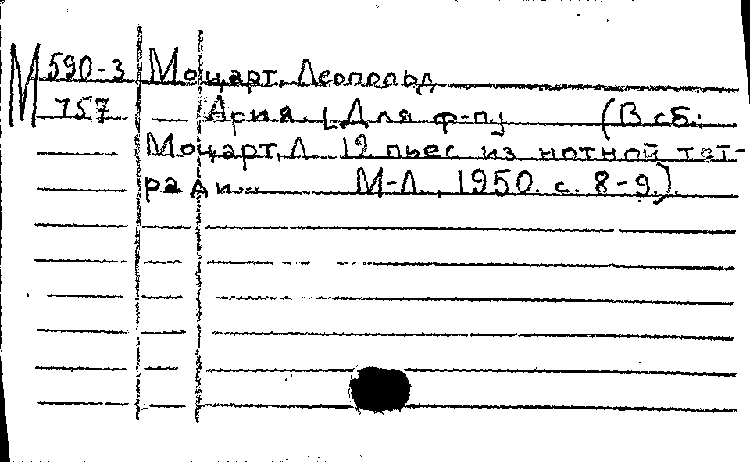 М 590-3 Моцарт, Леопольд
757 Ария. [Для ф-п] (В сб.:
Моцарт, Л. 12 пьес из нотной тет-
ради... М-Л., 1950. с. 8-9).